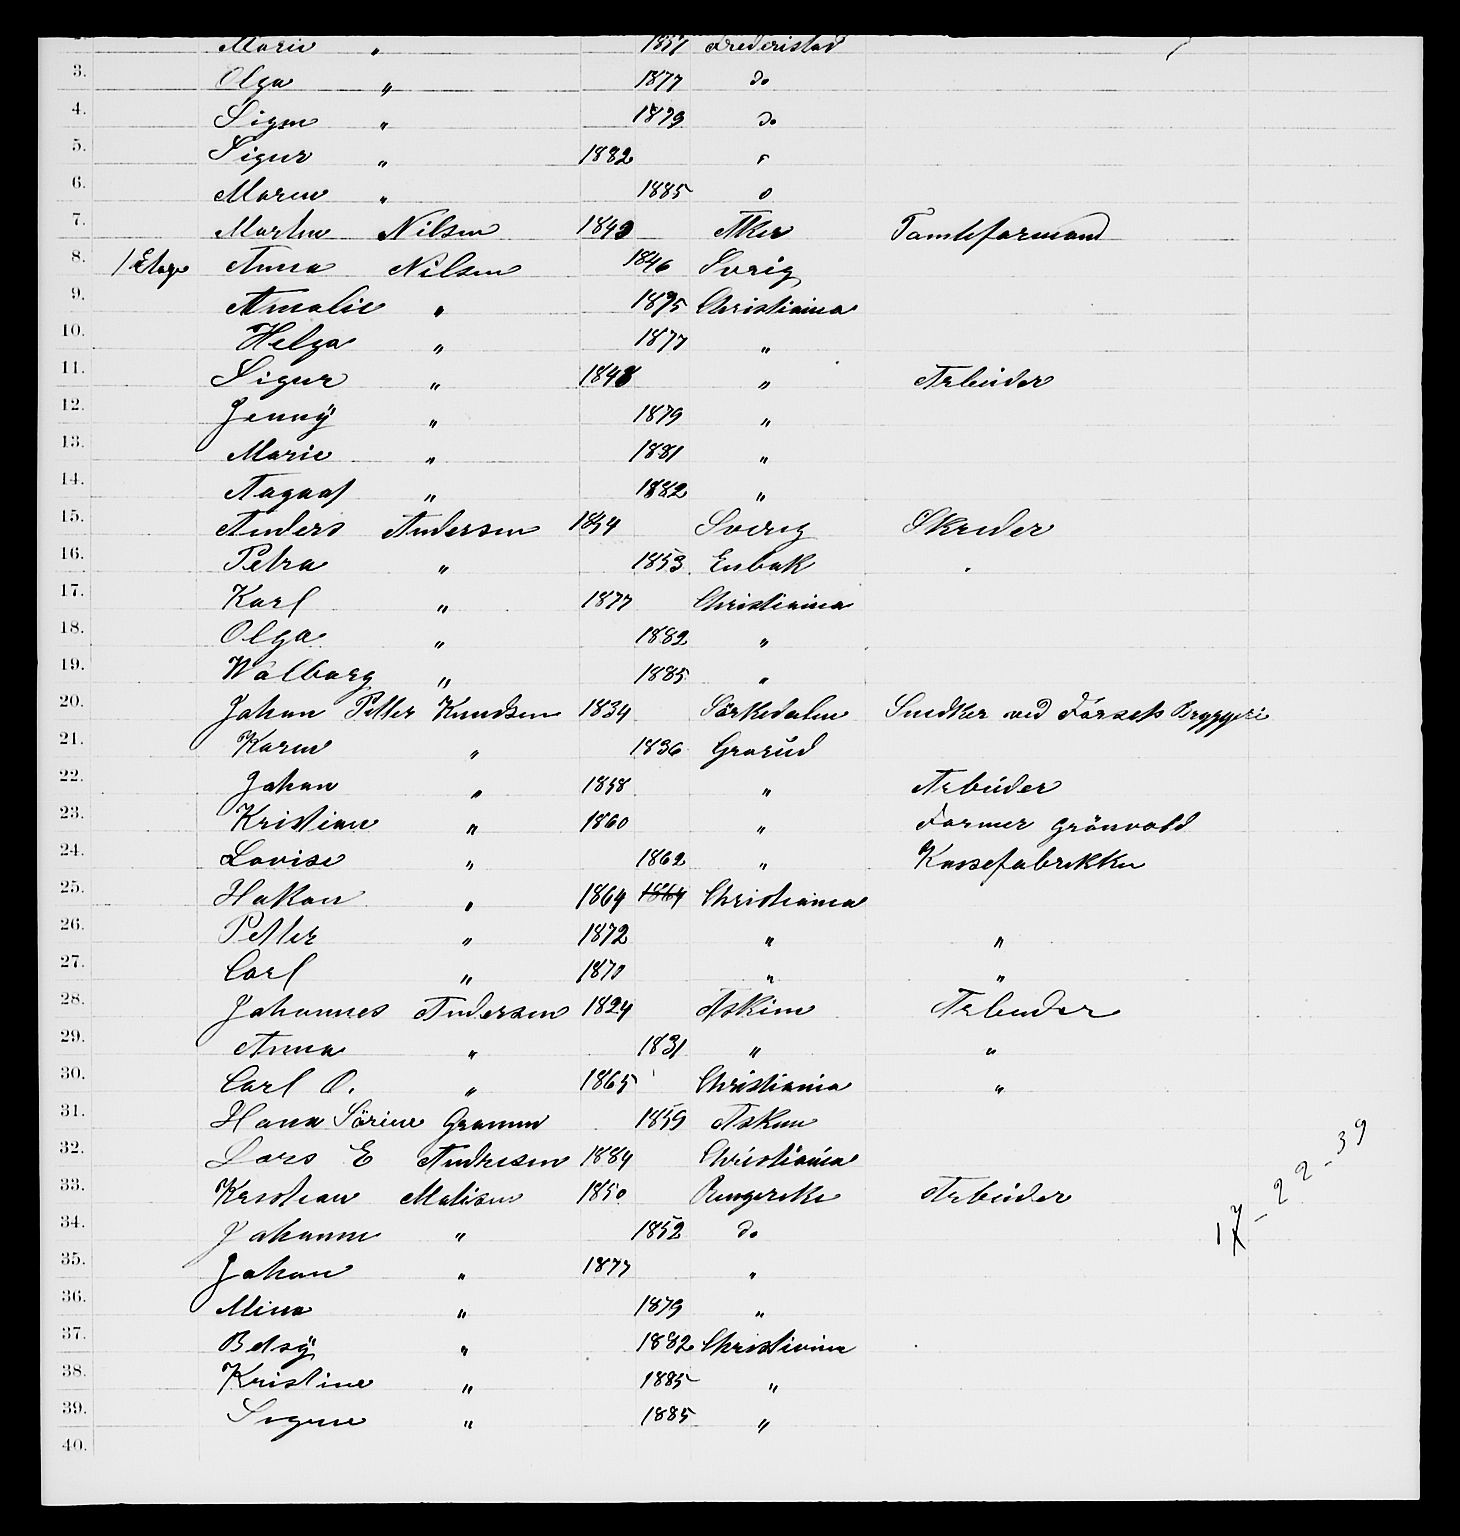 Marie " 1857 Frederistad
3. Olga " 1877 do
4. Signe " 1879 do
5. Sigur " 1882
6. Maren " 1885 o
7. Martin Nilsen 1849 Aker Tomteformand
8. 1 Etage Anna Nilsen 1846 Sverig
9. Amalie " 1875 Christiania
10. Helga " 1877 "
11. Sigur " 1848 " Arbeider
12. Jenny " 1879 "
13. Marie " 1881 "
14. Aagaat " 1882 "
15. Anders Andersen 1854 Sverig Skreder
16. Petra " 1853 Enbak
17. Karl " 1877 Christiania
18. Olga " 1882 "
19. Walborg " 1885 "
20. Johan Petter Knudsen 1834 Sørkedalen Snedker ved Bryggeri
21. Karen " 1836 Grorud
22. Johan " 1858 " Arbeider
23. Kristian " 1860 " Former Grönvold
24. Lovise " 1862 " Kassefabrikken
25. Hakon " 1864 1864 Christiania
26. Petter " 1872 " "
27. Carl " 1870 " "
28. Johannes Andersen 1824 Askim Arbeider
29. Anna " 1831 " "
30. Carl O. " 1865 Christiania "
31. Hana Sörine Gramm 1859 Askim
32. Lars E Andresen 1884 Christiania
33. Kristian Matisen 1850 Ringerike Arbeider
34. Johanne " 1852 do
35. Johan " 1877 "
36. Mina " 1879 "
37. Betsy " 1882 Christiania
38. Kristine " 1885 "
39. Signe " 1885 "
40.
17 - 22 - 39